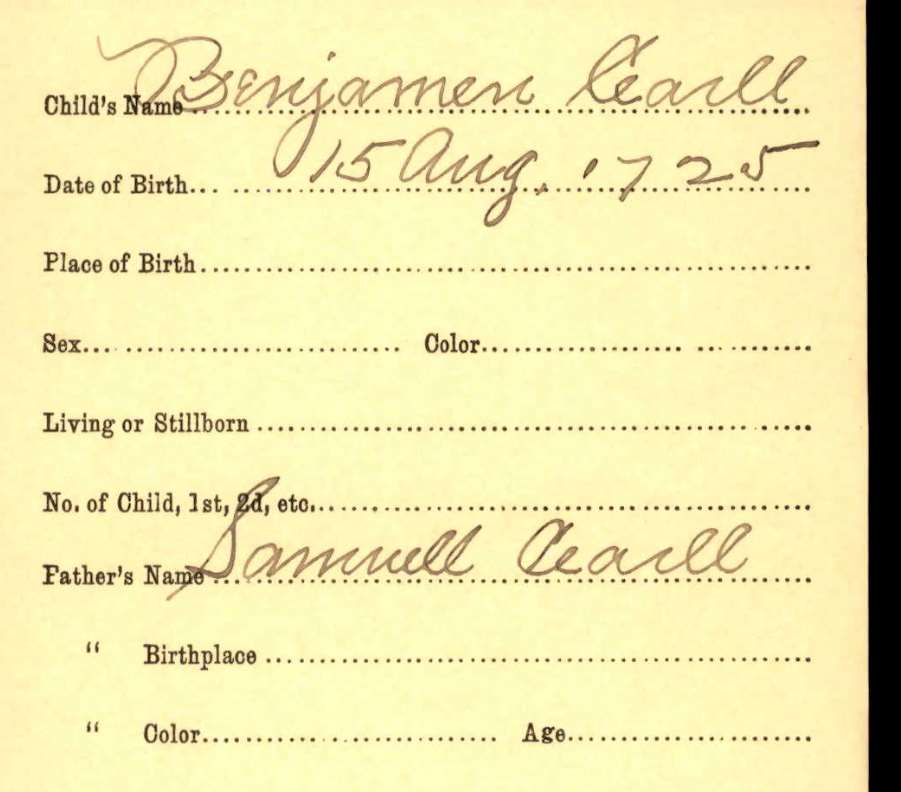 Child's Name Benjamen Cearll
Date of Birth 15 Aug. 1725
Place of Birth
Sex Color
Living or Stillborn
No. of Child, 1st, 2d, etc.
Father's Name Samuell Cearll
" Birthplace
" Color Age